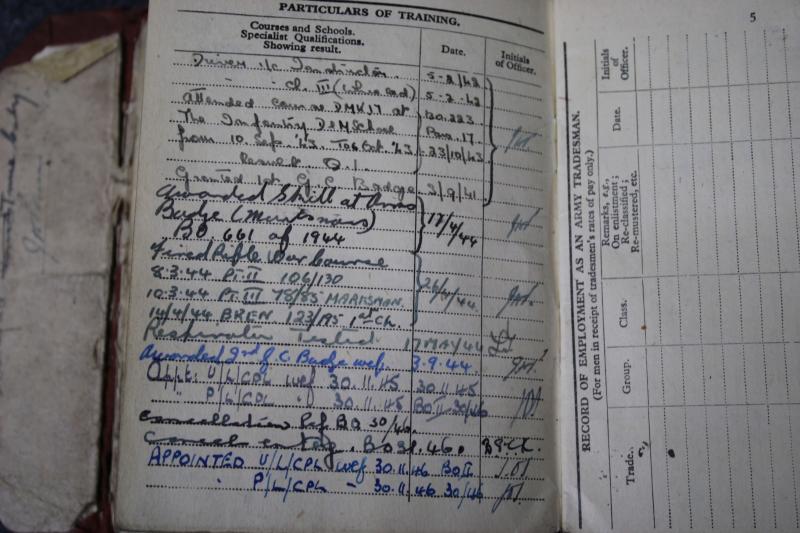 PARTICULARS OF TRAINING.
Courses and Schools.
Specialist Qualifications.
Showing result.
Date.
Initials
of Officer.
Driver i/c 5-2/42
" cl. III (wheeled) 5-2-42
Attended course DMK17 at BO.223
The Infantry D&M School Para.17
from 10 Sep. '43 To 6 Oct. '43 23/10/43
Result Q.1.
Granted 1st G.C. Badge 3/9/41
Awarded Skill at Arms
Badge (Marksman) 17/4/44
BO 661 of 1944
Fired Rifle War Course
8.3.44 Pt. II 106/130
10.3.44 Pt. III 78/85 MARKSMAN.
14/4/44 BREN 123/195 1st Cl.
Respirator Tested. 17 MAY/44
Awarded 2nd G.C. Badge wef. 3.9.44.
Appt. U/L/CPL wef 30.11.45 30.11.45
" P/L/CPL " 30.11.45 BO II 30/46
Cancellation Ref BO 30/46.
Cancel entry. BO 31.46.
APPOINTED U/L/CPL wef 30.11.46 BO II
" P/L/CPL - 30.11.46 30/46
5
RECORD OF EMPLOYMENT AS AN ARMY TRADESMAN.
(For men in receipt of tradesmen's rates of pay only.)
Trade.
Group.
Class.
Remarks, e.g.,
On enlistment;
Re-classified;
Re-mustered, etc.
Date.
Initials
of
Officer.